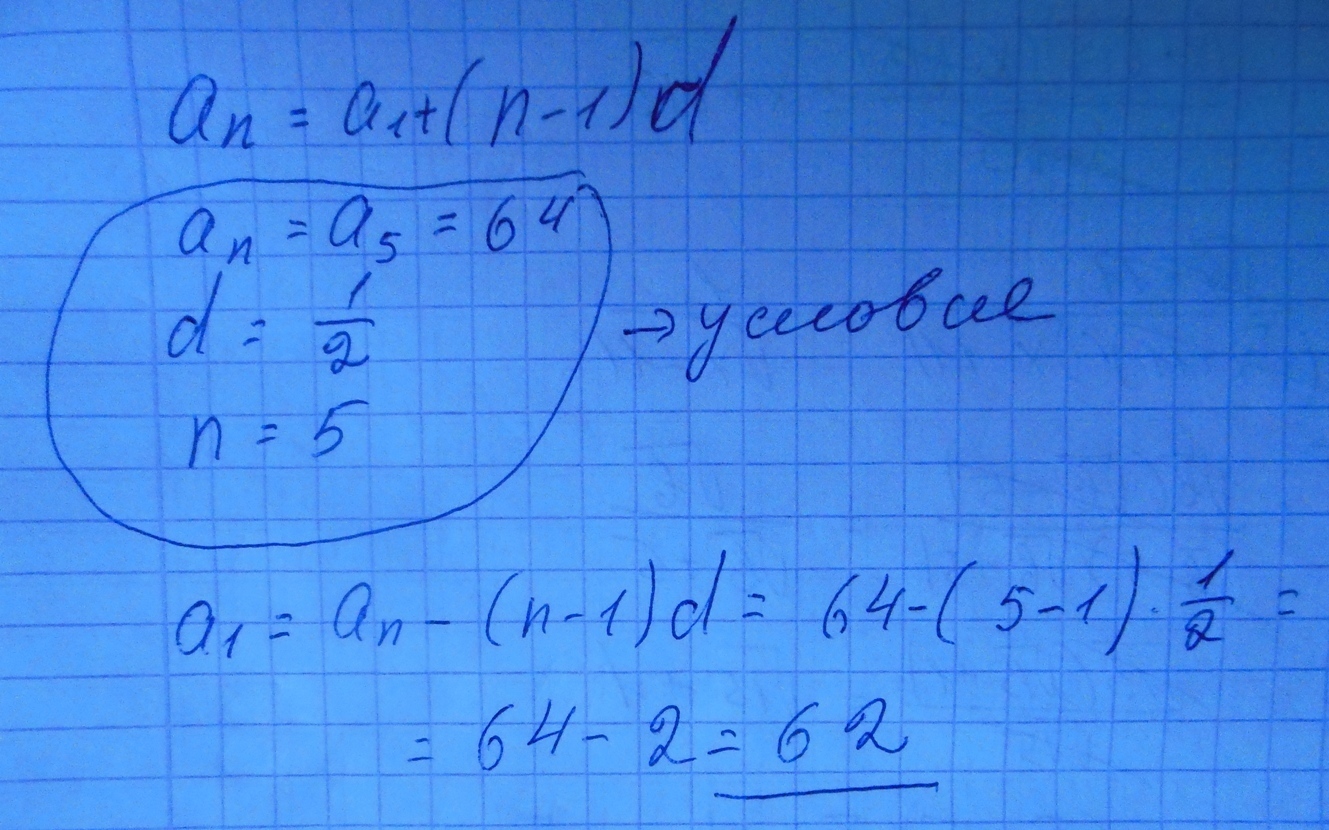 aₙ = a₁+(n-1)d
aₙ = a₅ = 64
d = 1/2
→ условие
n = 5
a₁ = aₙ - (n-1)d = 64-(5-1)·1/2 =
= 64 - 2 = 62